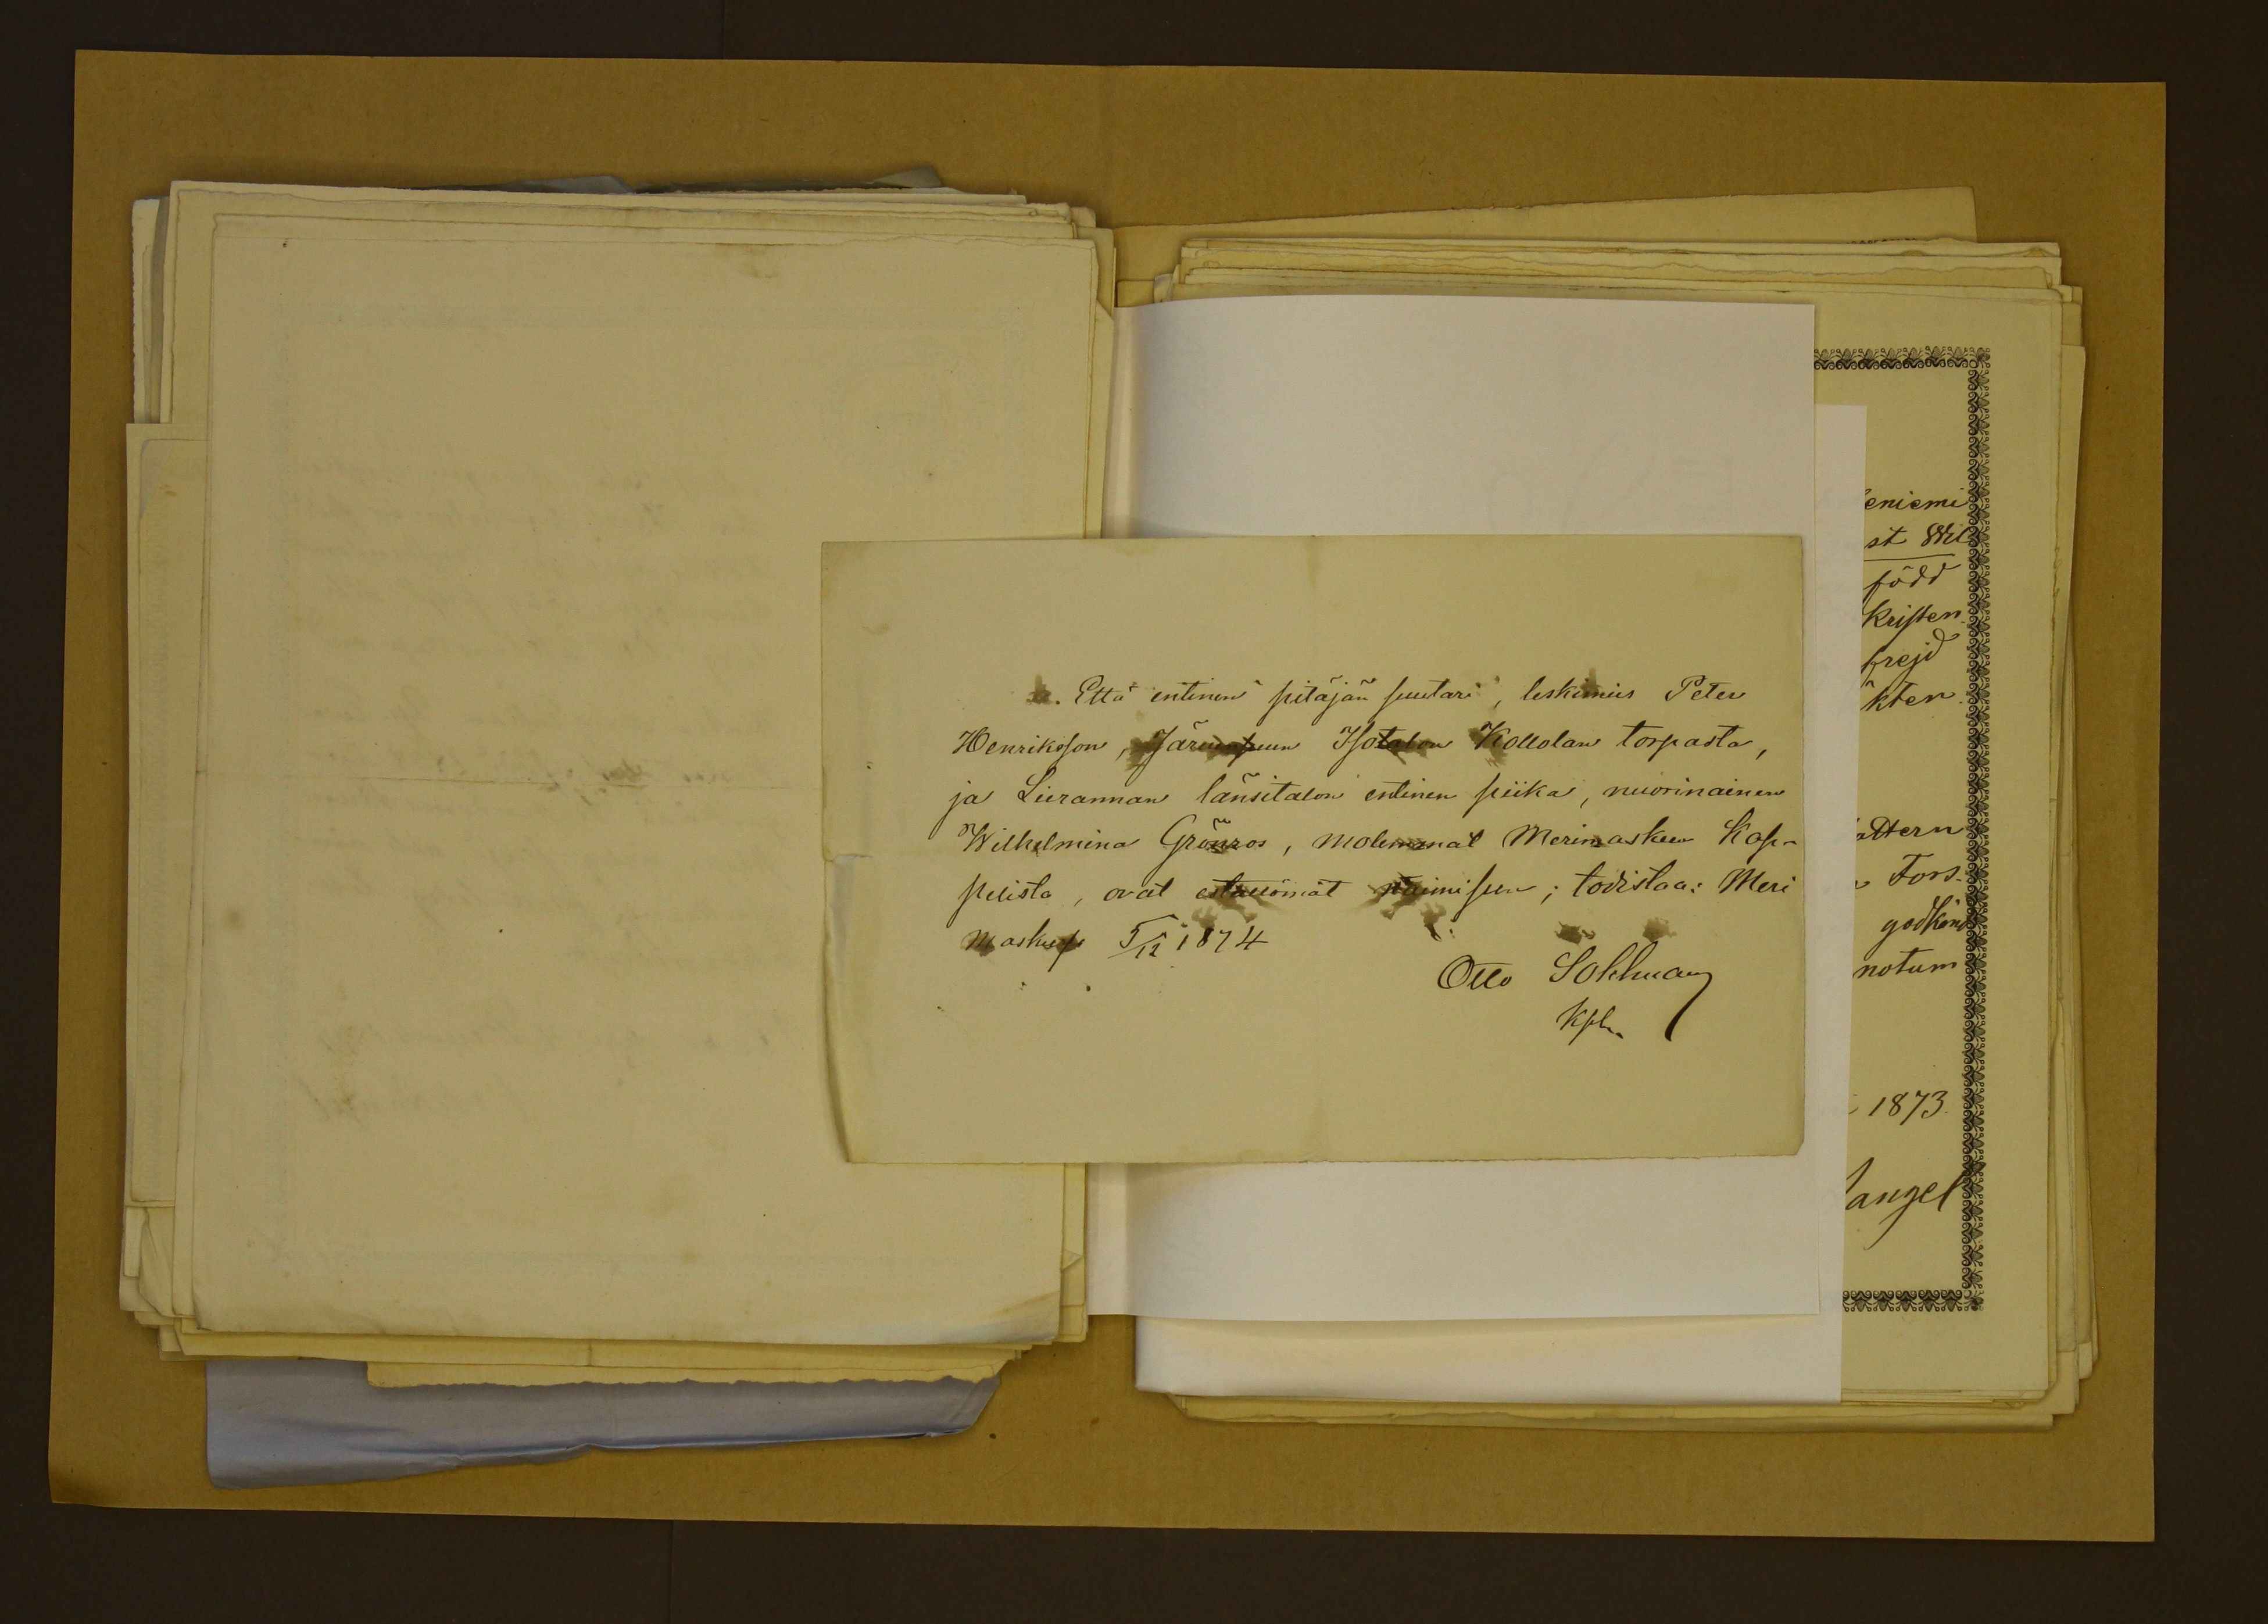 Että entinen pitäjän suutari, leskimies Peter
Henriksson, Järvensuun Isotalon Kollolan torpasta,
ja Lierannan länsitalon entinen piika, nuorinainen
Wilhelmina Grönros, molemmat Merimaskun Kap-
pelista, ovat esteettömät naimiseen; todistaa: Meri
maskussa 5/12 1874
Otto Sohlman
Kpln.
eniemi
st Wil
född
kristen
frejd
kten
attern
Fors.
godkänd
notum
1873.
angel